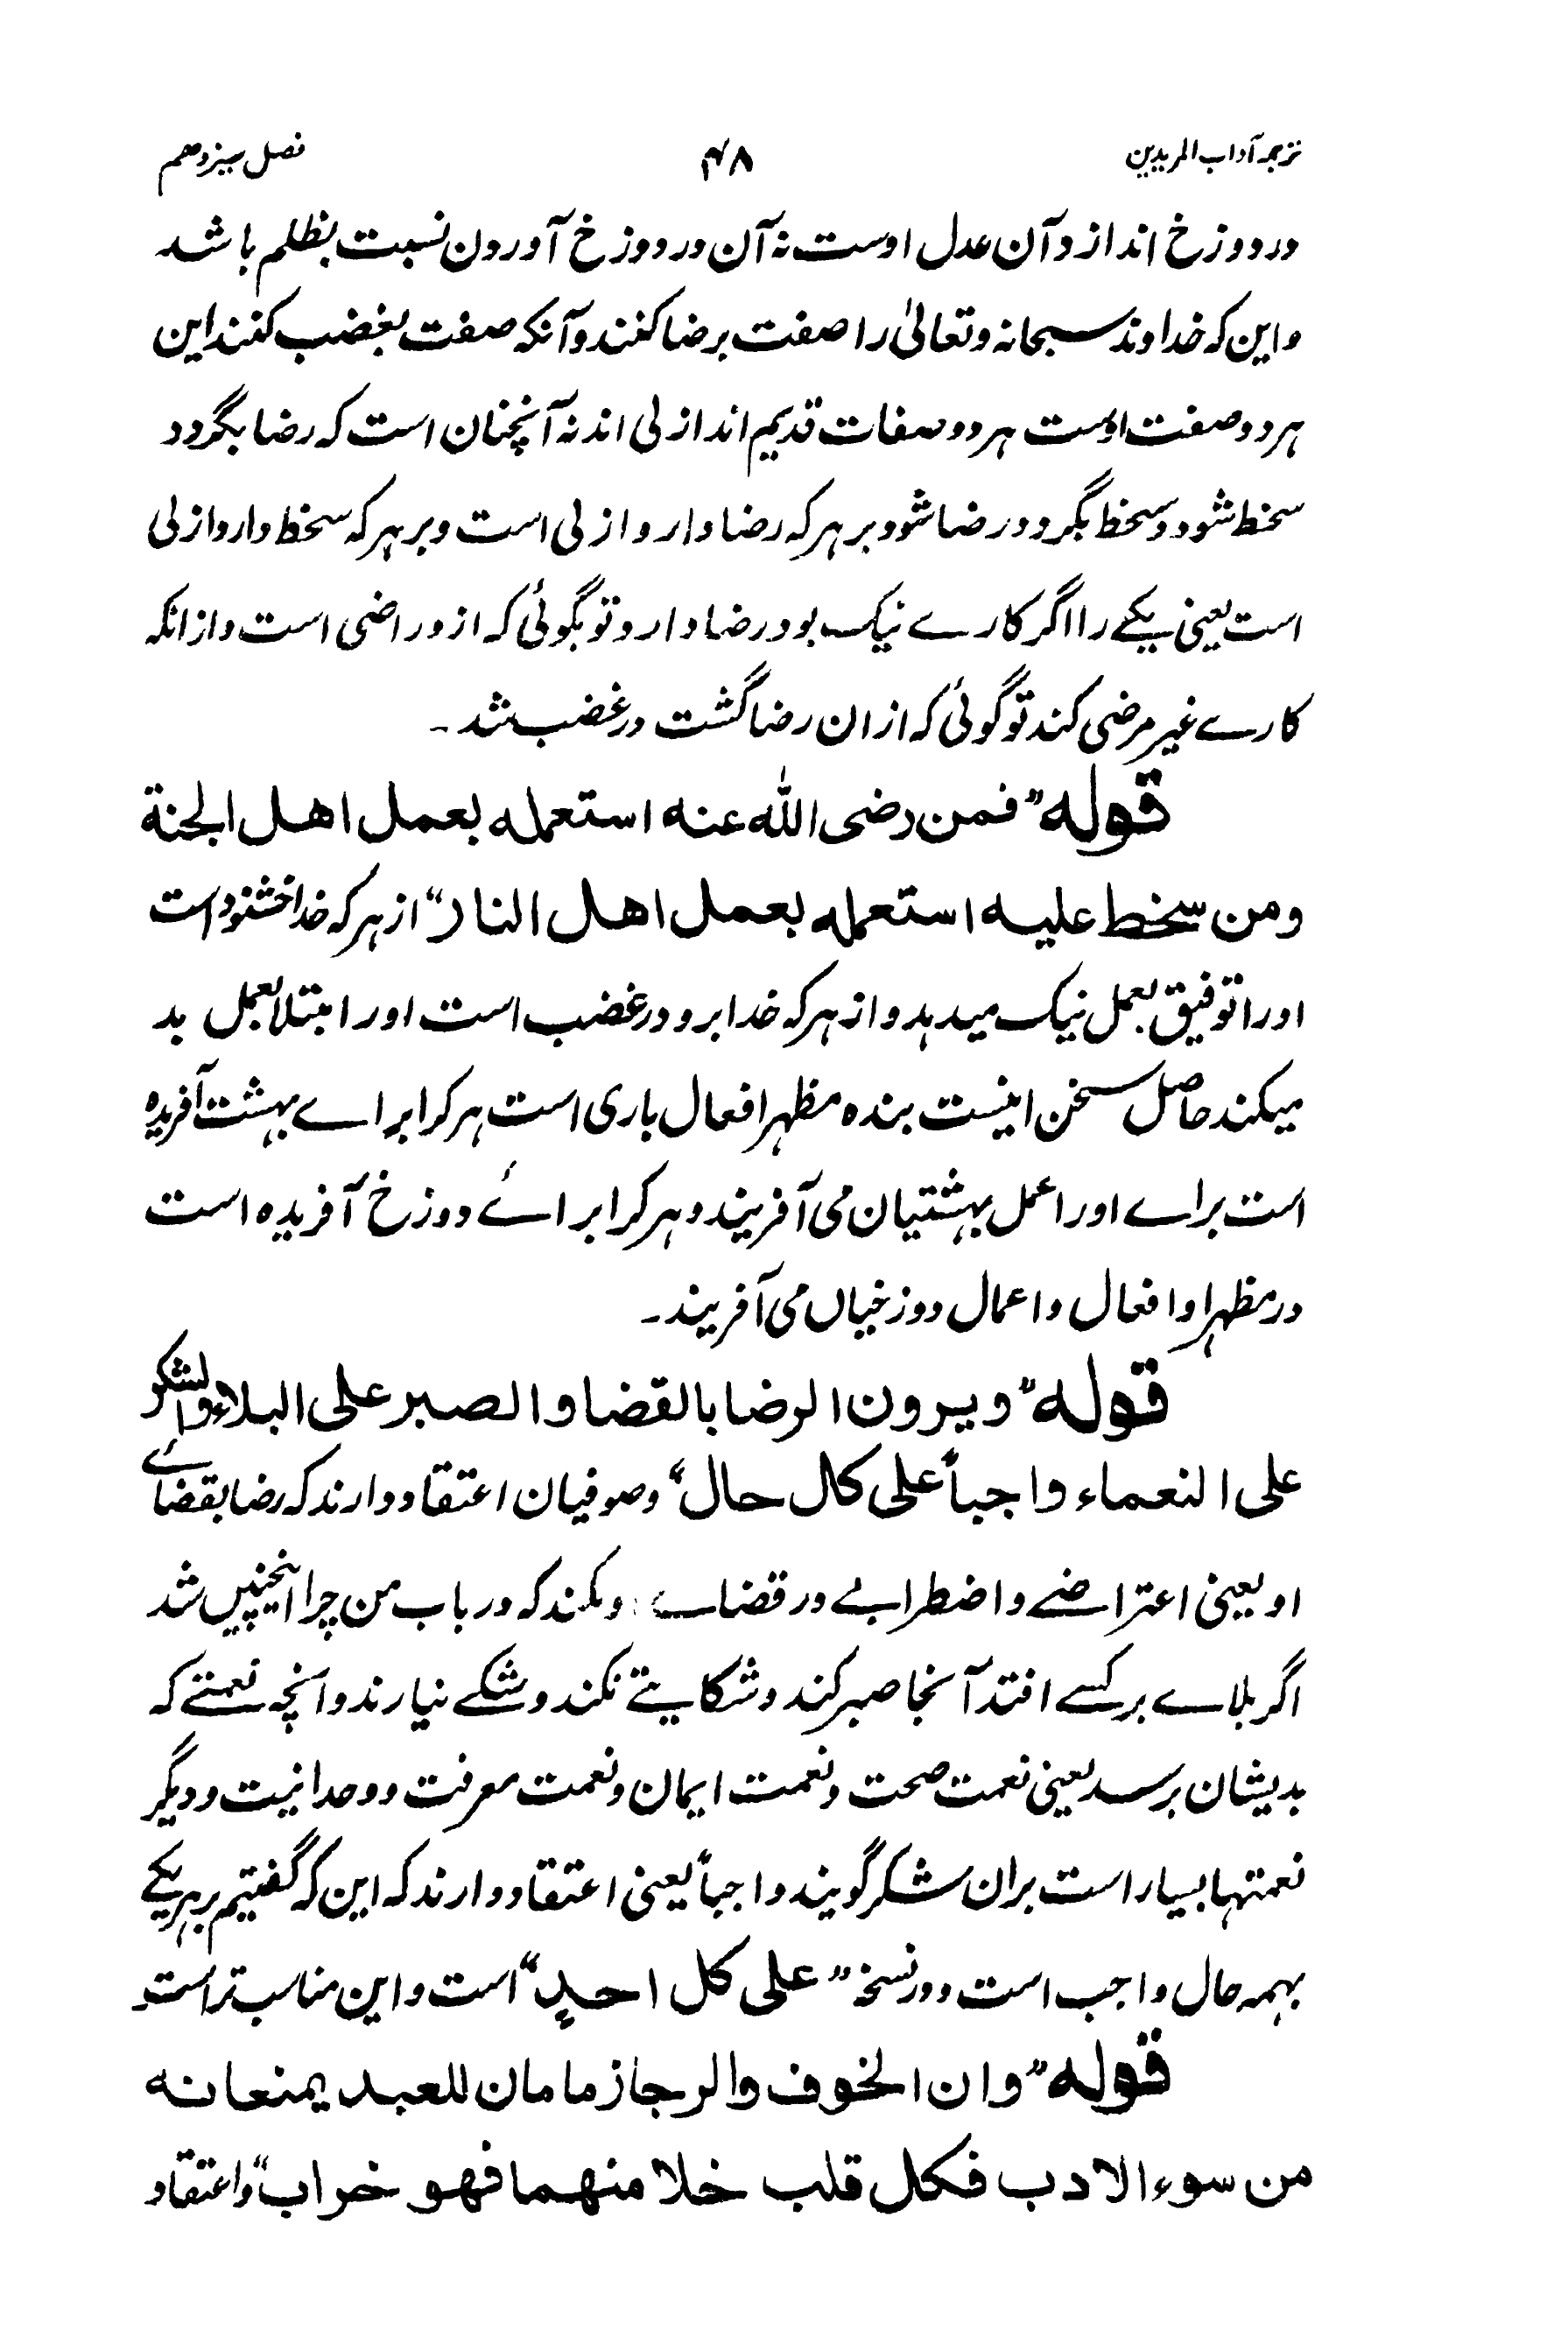 ترجمہ آداب المریدین ۴۸ فصل سیزدہم
در دوزخ اندازد آن عدل اوست نہ آن در دوزخ آوردن نسبت بظلم باشد
واین کہ خداوند سبحانہ وتعالیٰ را صفت برضا کنند وآنکہ صفت بغضب کنند این
ہر دو صفت اوست ہر دو صفات قدیم اند ازلی اند نہ آنچنان است کہ رضا بگردد
سخط شود و سخط بگردد رضا شود بر ہر کہ رضا دارد ازلی است و بر ہر کہ سخط دارد ازلی
است یعنی یکے را اگر کارے نیک بود رضا دارد تو بگوئی کہ ازو راضی است و ازانکہ
کارے غیر مرضی کند تو گوئی کہ ازان رضا گشت در غضب شد ۔
قوله ”فمن رضی اللہ عنه استعمله بعمل اهل الجنة
ومن سخط عليه استعمله بعمل اهل النار“ از ہر کہ خدا خشنود است
اورا توفیق بعمل نیک میدہد و از ہر کہ خدا برو در غضب است اورا مبتلا بعمل بد
میکند حاصل سخن اینست بندہ مظہر افعال باری است ہر کرا براے بہشت آفریدہ
است براے اورا عمل بہشتیان می آفریند و ہر کرا برائے دوزخ آفریدہ است
در مظہر او افعال و اعمال دوزخیاں می آفریند ۔
قوله ”ويرون الرضا بالقضا والصبر على البلاء والشكر
على النعماء واجباً على كل حال“ وصوفیان اعتقاد دارند کہ رضا بقضائے
او یعنی اعتراضے و اضطرابے در قضاے او مکند کہ در باب من چرا اینچنیں شد
اگر بلاے بر کسے افتد آنجا صبر کند و شکایتے نکند و شکے نیارند و آنچہ نعمتے کہ
بدیشان برسد یعنی نعمت صحت و نعمت ایمان و نعمت معرفت و وحدانیت و دیگر
نعمتہا بسیار است بران شکر گویند واجباً یعنی اعتقاد دارند کہ این کہ گفتیم بر ہر یکے
بہمہ حال واجب است و در نسخہ ”علی کل احدٍ“ است و این مناسب تر است۔
قوله ”وان الخوف والرجا زمامان للعبد يمنعانه
من سوء الادب فكل قلب خلا منهما فهو خراب“ و اعتقاد